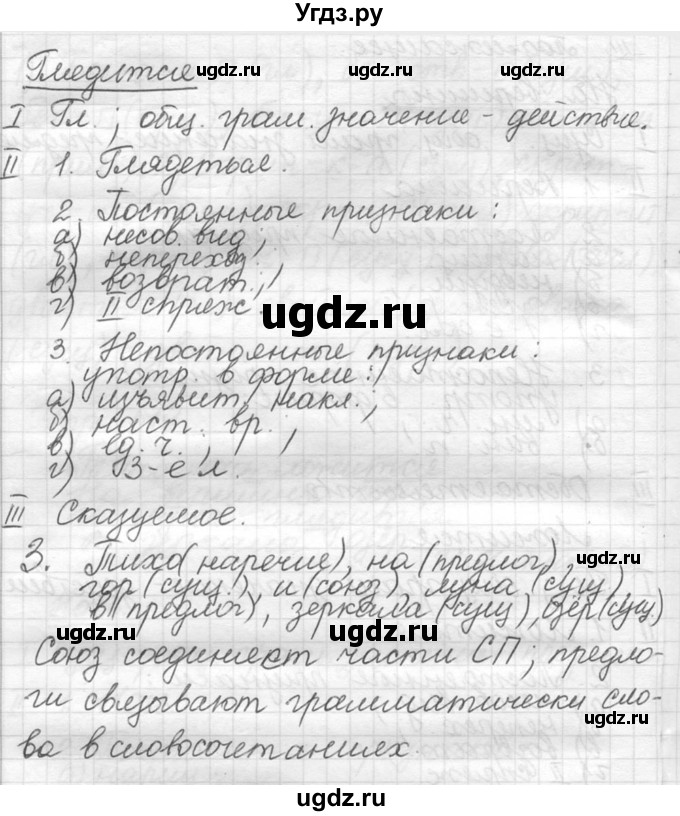 Угдз.ру
Глядится
ugdz.ru ugdz.ru
I Гл.; общ. грам. значение – действие.
II 1. Глядеться.
2. Постоянные признаки:
а) несов. вид;
б) неперход.;
в) возврат.;
г) II спряж.
ugdz.ru
3. Непостоянные признаки:
употр. в форме:
а) изъявит. накл.;
б) наст. вр.;
в) ед. ч.;
г) 3-е л.
ugdz.ru ugdz.ru
III Сказуемое.
3. Тихо (наречие), на (предлог),
ugdz.ru
гор (сущ.), и (союз), луна (сущ),
в (предлог), зеркала (сущ), озер (сущ.)
ugdz.ru ugdz.ru
Союз соединяет части СП; предло-
ги связывают грамматически сло-
ugdz.ru
ва в словосочетаниях.
ugdz.ru
ugdz.ru